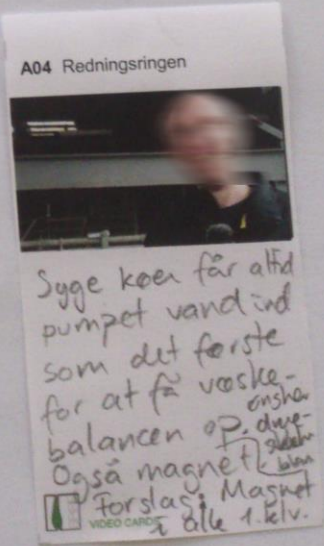 A04 Redningsringen
Syge køer får altid
pumpet vand ind
som det første
for at få væske-
balancen op.
Også magnet
Forslag: Magnet
i alle 1. kelv.
VIDEO CARDS